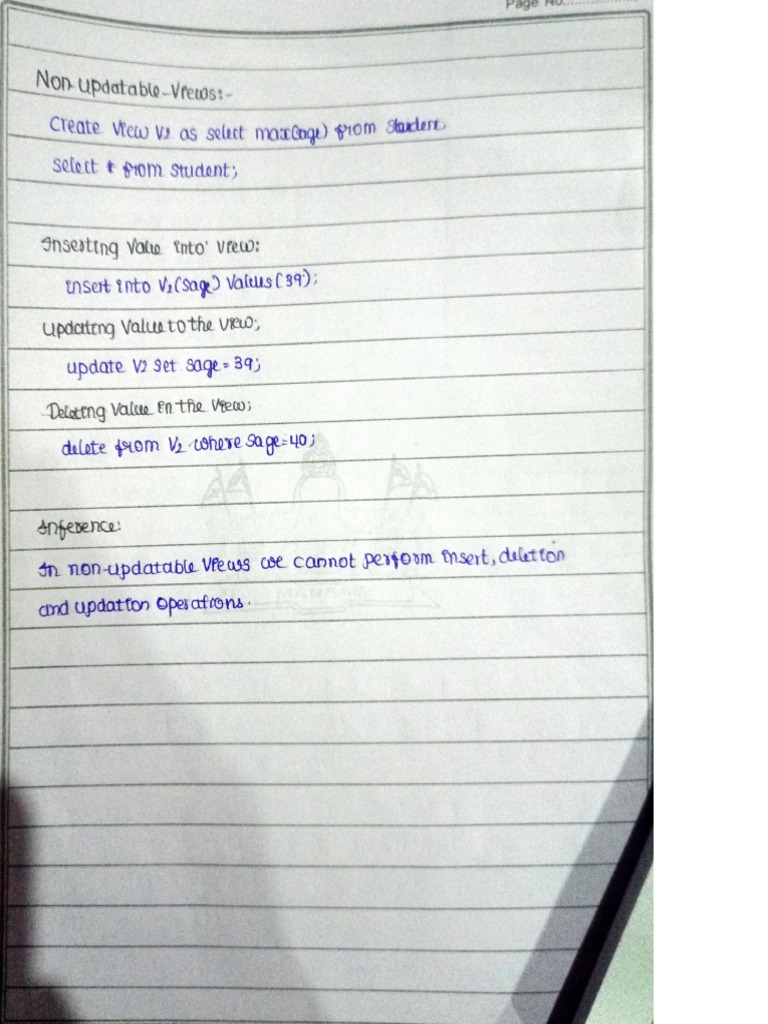 Page No.................
Non-Updatable-Views:-
Create view V2 as select max(age) from student
select * from student;
Inserting Value into view:
insert into V2(sage) Values(39);
Updating Value to the view;
update V2 set sage=39;
Deleting Value in the view;
delete from V2 where sage=40;
Inference:
In non-updatable views we cannot perform insert, deletion
and updation operations.